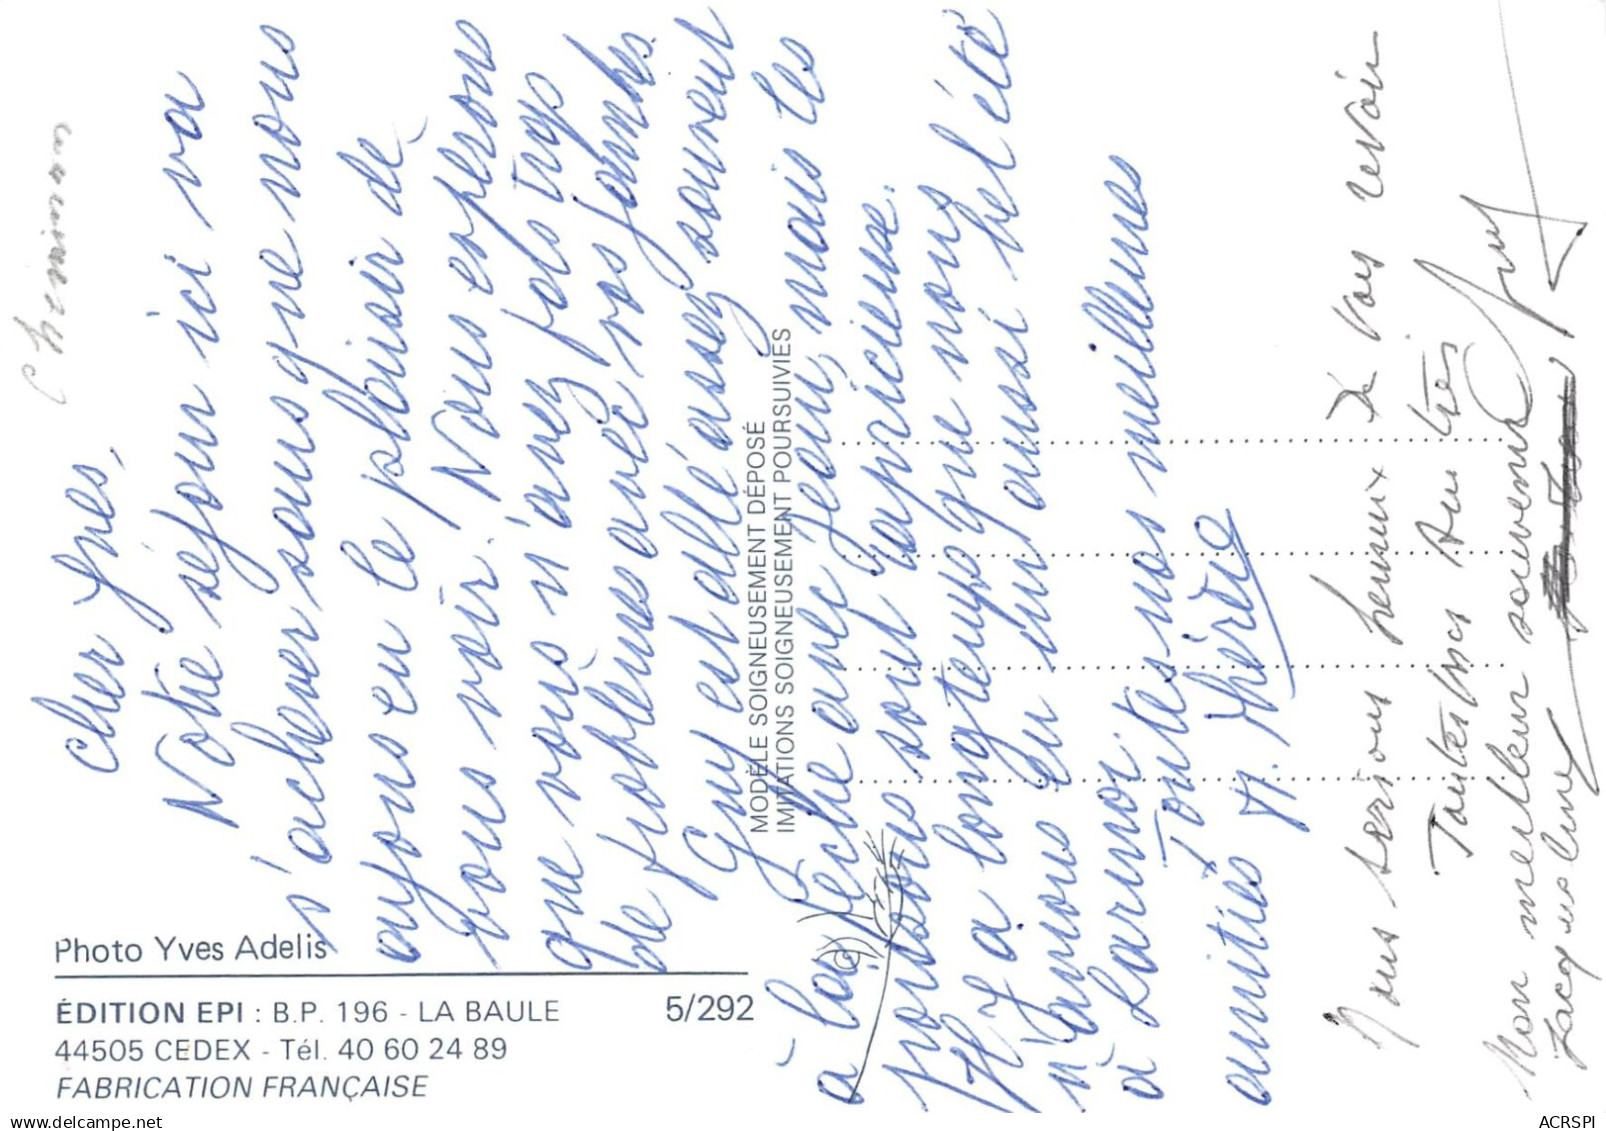 Cher Yves,
Notre séjour ici va
s'achever sans que nous
ayons eu le plaisir de
vous voir. Nous espérons
que vous n'avez pas trop
de problèmes avec vos jambes.
Guy est allé assez souvent
à la pêche avec Jean, mais les
poissons sont capricieux.
Il y a longtemps que nous
n'avions eu un aussi bel été
à Larmor.
Toutes nos meilleures
amitiés M. Thérèse
Nous serions heureux de vous revoir
Toutes Amitiés
Guy
Mon meilleur souvenir
Jacqueline
Photo Yves Adelis
ÉDITION EPI : B.P. 196 - LA BAULE 5/292
44505 CEDEX - Tél. 40 60 24 89
FABRICATION FRANÇAISE
MODÈLE SOIGNEUSEMENT DÉPOSÉ
IMITATIONS SOIGNEUSEMENT POURSUIVIES
delcampe.net
ACRSPI